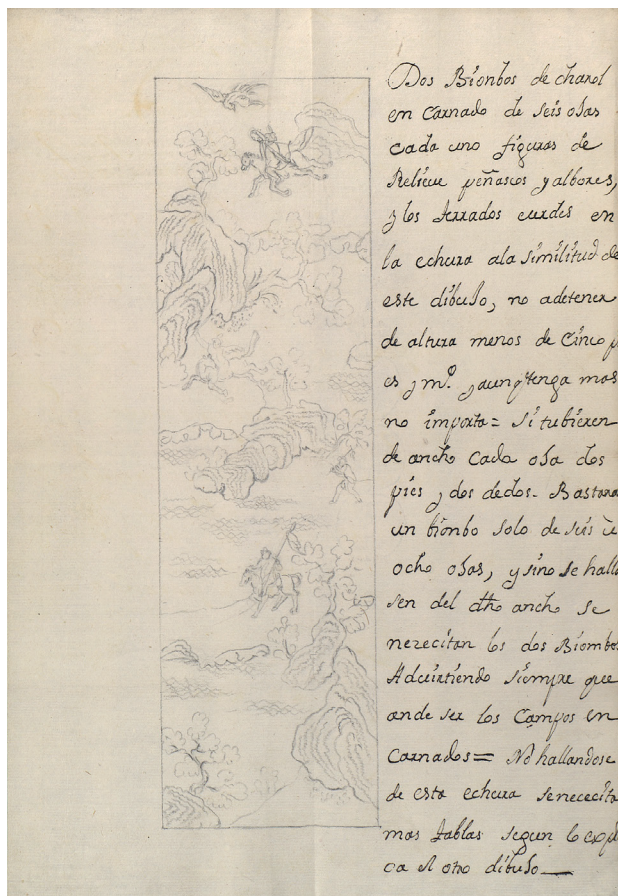 Dos Bionbos de charol
en Carnado de seis oJas
cada uno figuras de
Relieue peñascos y albores,
y los terrados eurdes en
la echura ala similitud de
este dibuJo, no adetener
de altura menos de Cinco p
es y mº. y aunqᵉ tenga mas
no importa= si tubieren
de ancho cada oJa dos
pies y dos dedos. Bastara
un bionbo solo de seis ù
ocho oJas, y sino se halla
sen del dho ancho se
nezecitan los dos Biombos
Aduirtiendo siempre que
ande ser los Campos en
Carnados= No hallandose
de esta echura senececita
mas tablas segun lo expli
ca el otro dibuJo